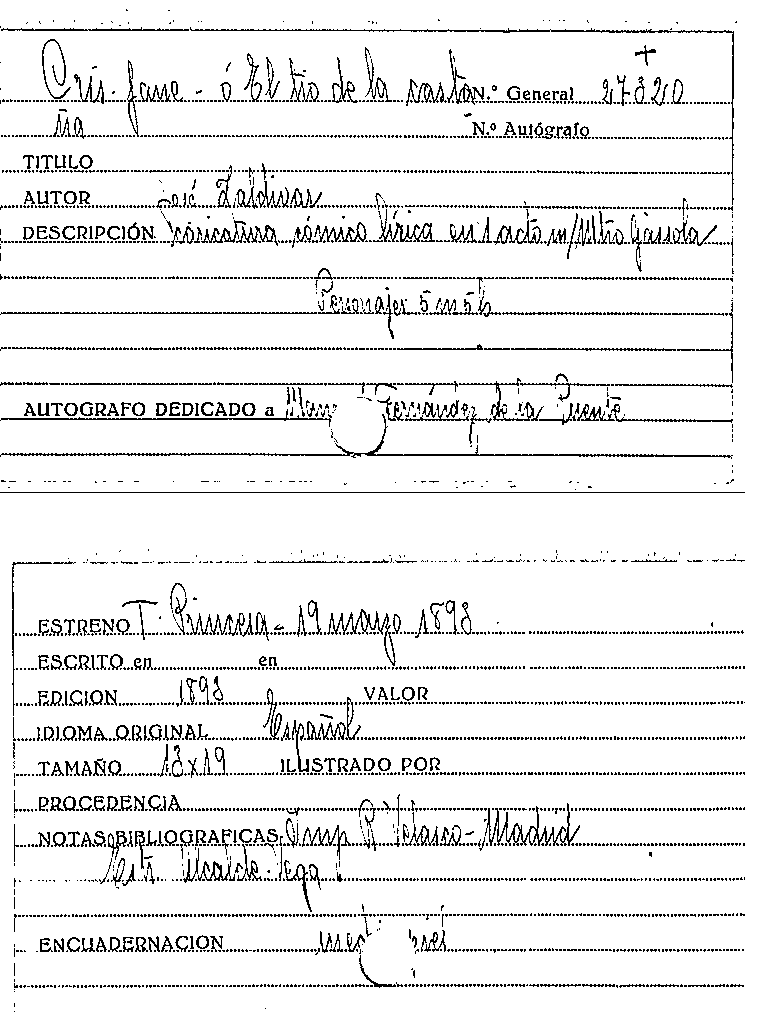 Cris-fane - ó El tio de la casta N.º General 27820
ña N.º Autógrafo
TITULO
AUTOR José Zaldivar
DESCRIPCIÓN caricatura cómico lírica en 1 acto m/ Mtro Gassola
Personajes 5 m 5 h
AUTOGRAFO DEDICADO a Fernández de la Puente
ESTRENO T. Princesa - 19 marzo 1898
ESCRITO en en
EDICION 1898 VALOR
IDIOMA ORIGINAL Español
TAMAÑO 13x19 ILUSTRADO POR
PROCEDENCIA
NOTAS BIBLIOGRAFICAS Imp R Velasco - Madrid
Alcalde-Vega
ENCUADERNACION piel